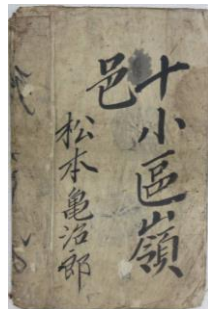 十小區嶺
邑
松本亀治郎